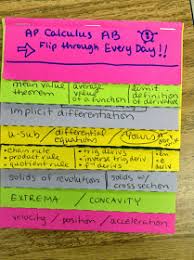 AP Calculus AB
→ Flip through Every Day!!
mean value theorem
average value of a function
limit definition of derivative
implicit differentiation
u-sub / differential equations /
• chain rule
• product rule
• quotient rule
• trig derivs
• inverse trig deriv
• ln
• e
solids of revolution / solids w/ cross section
EXTREMA / CONCAVITY
velocity / position / acceleration